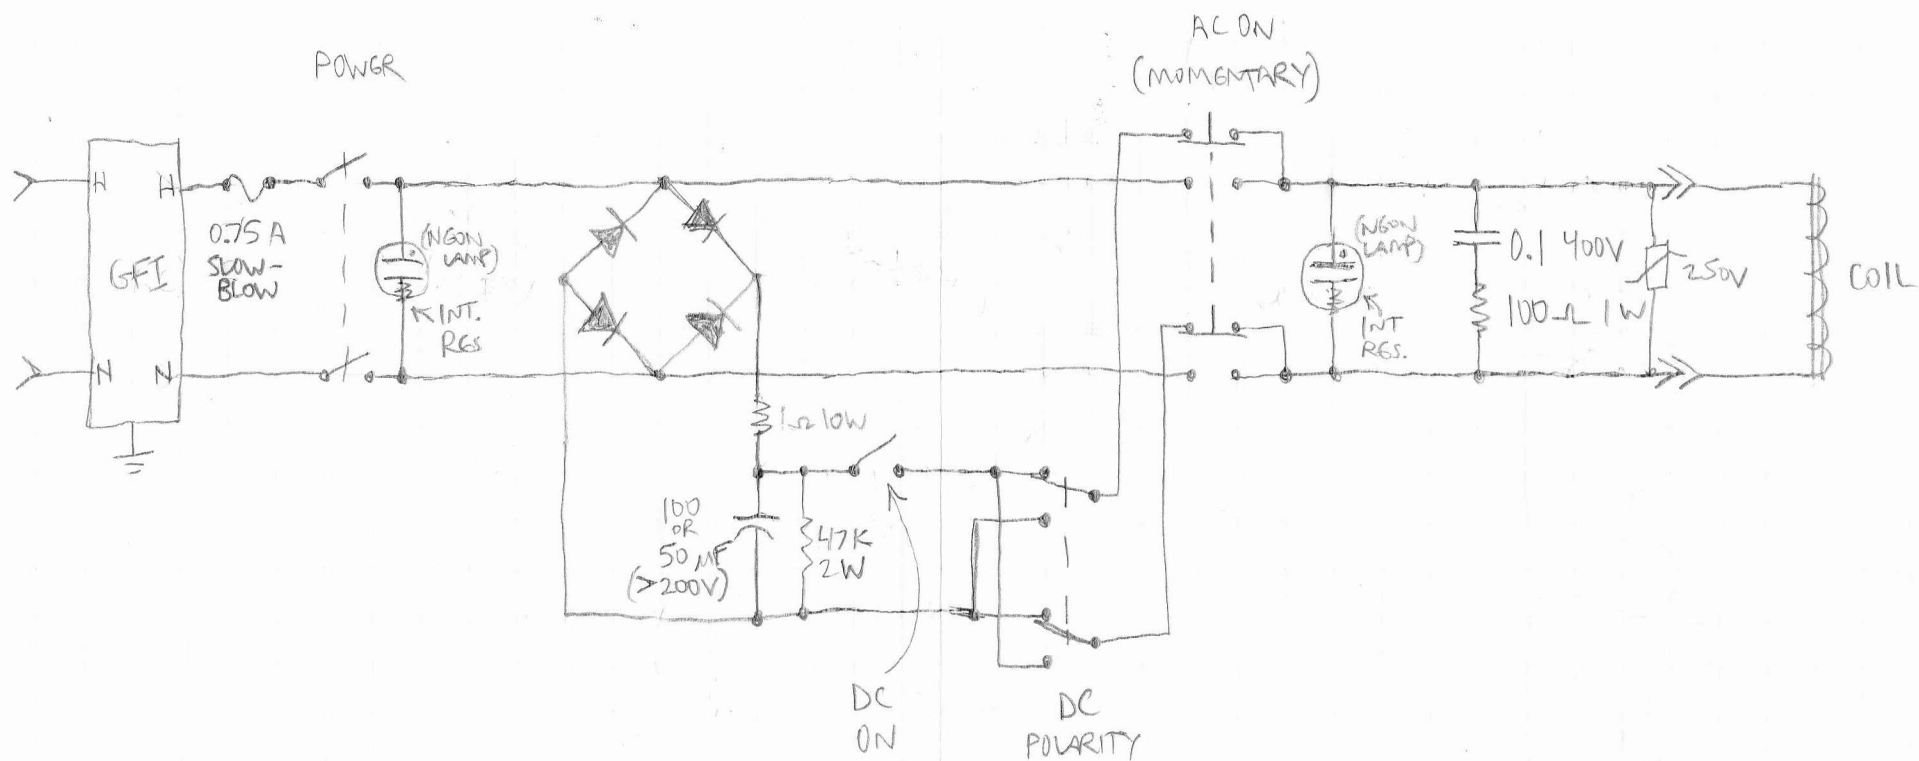 POWER
AC ON
(MOMENTARY)
H
H
GFI
N
N
0.75 A
SLOW-
BLOW
(NEON
LAMP)
INT.
RES
1Ω 10W
100
OR
50 µF
(>200V)
47K
2W
DC
ON
DC
POLARITY
(NEON
LAMP)
INT
RES.
0.1 400V
100Ω 1W
250V
COIL